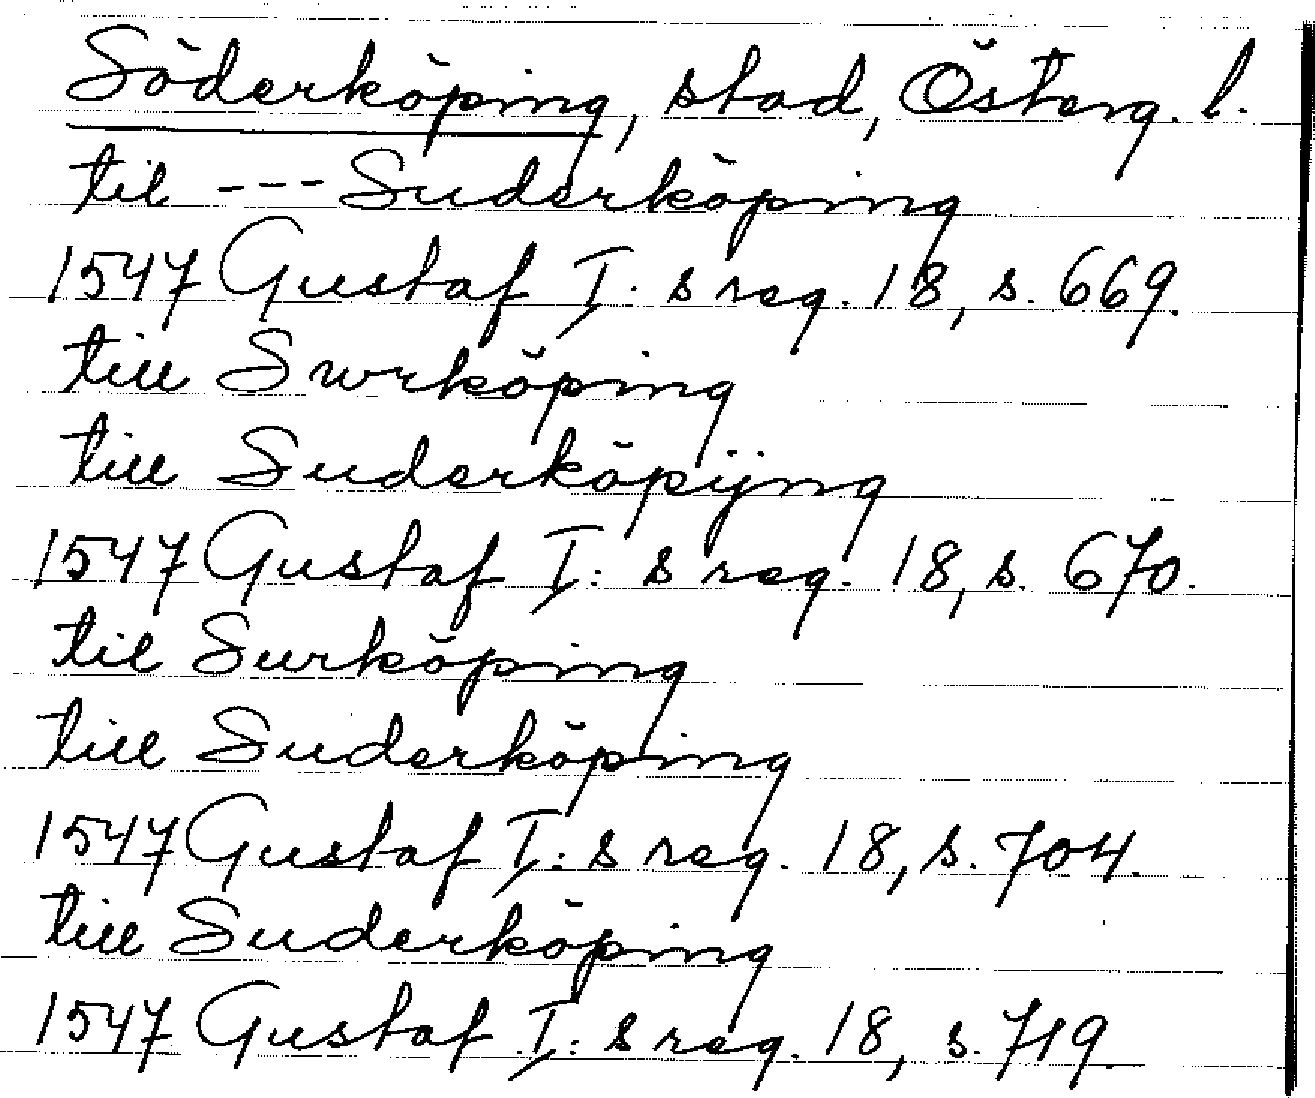 Söderköping, stad, Österg. l.
til --- Suderköping
1547 Gustaf I. s reg. 18, s. 669.
till Swrköping
till Suderköpijng
1547 Gustaf I: s reg. 18, s. 670.
til Surköping
till Suderköping
1547 Gustaf I: s reg. 18, s. 704.
till Suderköping
1547 Gustaf I: s reg. 18, s. 719.